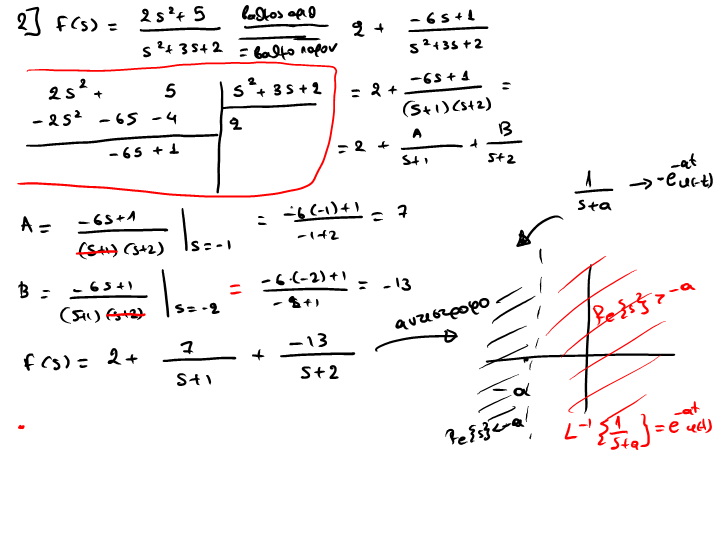 2] F(s) = \frac{2s^2+5}{s^2+3s+2} \frac{βαθμος αριθ}{= βαθμο παρον} 2 + \frac{-6s+1}{s^2+3s+2}
2s^2 + 5 | s^2+3s+2
-2s^2 -6s -4 | 2
-6s + 1
= 2 + \frac{-6s+1}{(s+1)(s+2)} =
= 2 + \frac{A}{s+1} + \frac{B}{s+2}
\frac{1}{s+a} → -e^{-at} u(-t)
A = \frac{-6s+1}{(s+1)(s+2)} |_{s=-1} = \frac{-6(-1)+1}{-1+2} = 7
B = \frac{-6s+1}{(s+1)(s+2)} |_{s=-2} = \frac{-6·(-2)+1}{-2+1} = -13
F(s) = 2 + \frac{7}{s+1} + \frac{-13}{s+2}
αντιστροφο
Re{s} > -a
-a
Re{s} < -a
L^{-1}{\frac{1}{s+a}} = e^{-at} u(t)